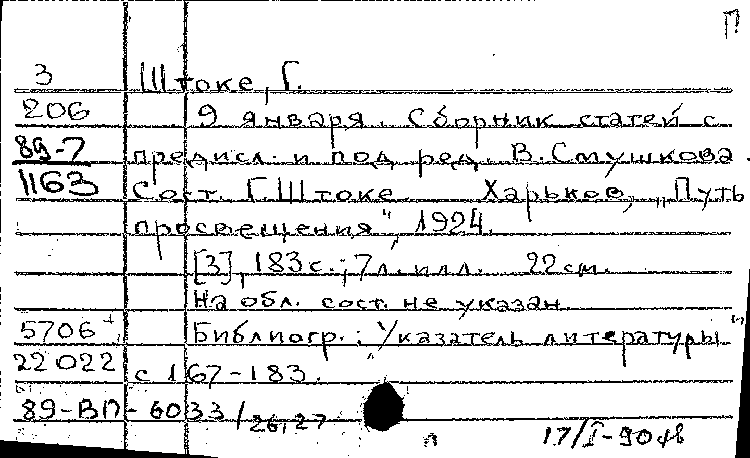 П
3 Штоке, Г.
206 9 января. Сборник статей с
89-7 предисл. и под ред. В. Смушкова.
1163 Сост. Г. Штоке Харьков, „Путь
просвещения", 1924.
[3], 183 с.; 7 л. илл. 22 см.
На обл. сост. не указан
5706+ Библиогр.: „Указатель литературы"
22 022 с 167-183.
89-ВП-6033/26,27
п 17/I-90